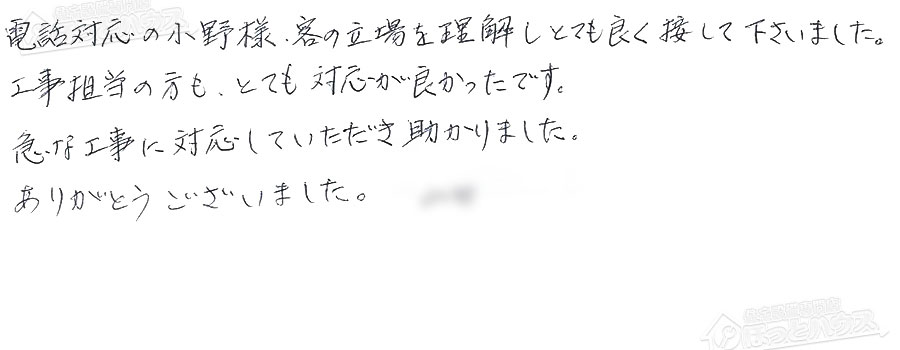 電話対応の小野様、客の立場を理解しとても良く接して下さいました。
工事担当の方も、とても対応が良かったです。
急な工事に対応していただき助かりました。
ありがとうございました。
ほっとハウス